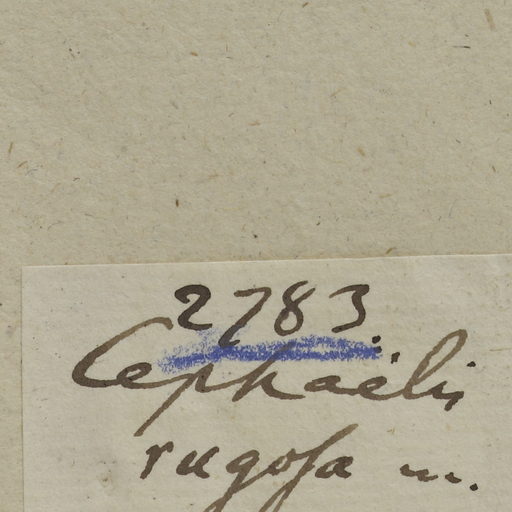 2783.
Cephaëlis
rugosa m.